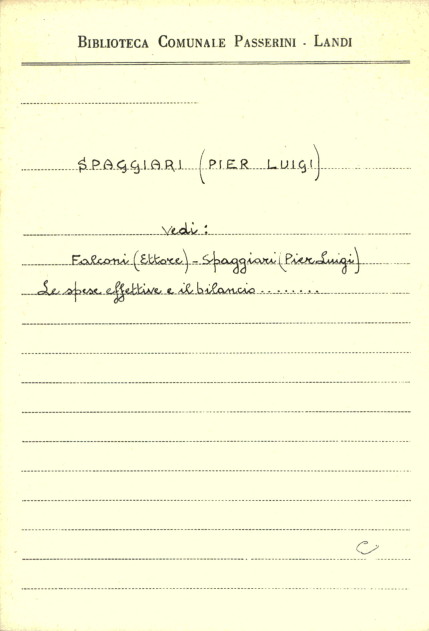 BIBLIOTECA COMUNALE PASSERINI - LANDI
SPAGGIARI (PIER LUIGI)
Vedi:
Falconi (Ettore) - Spaggiari (Pier Luigi)
Le spese effettive e il bilancio ........
C